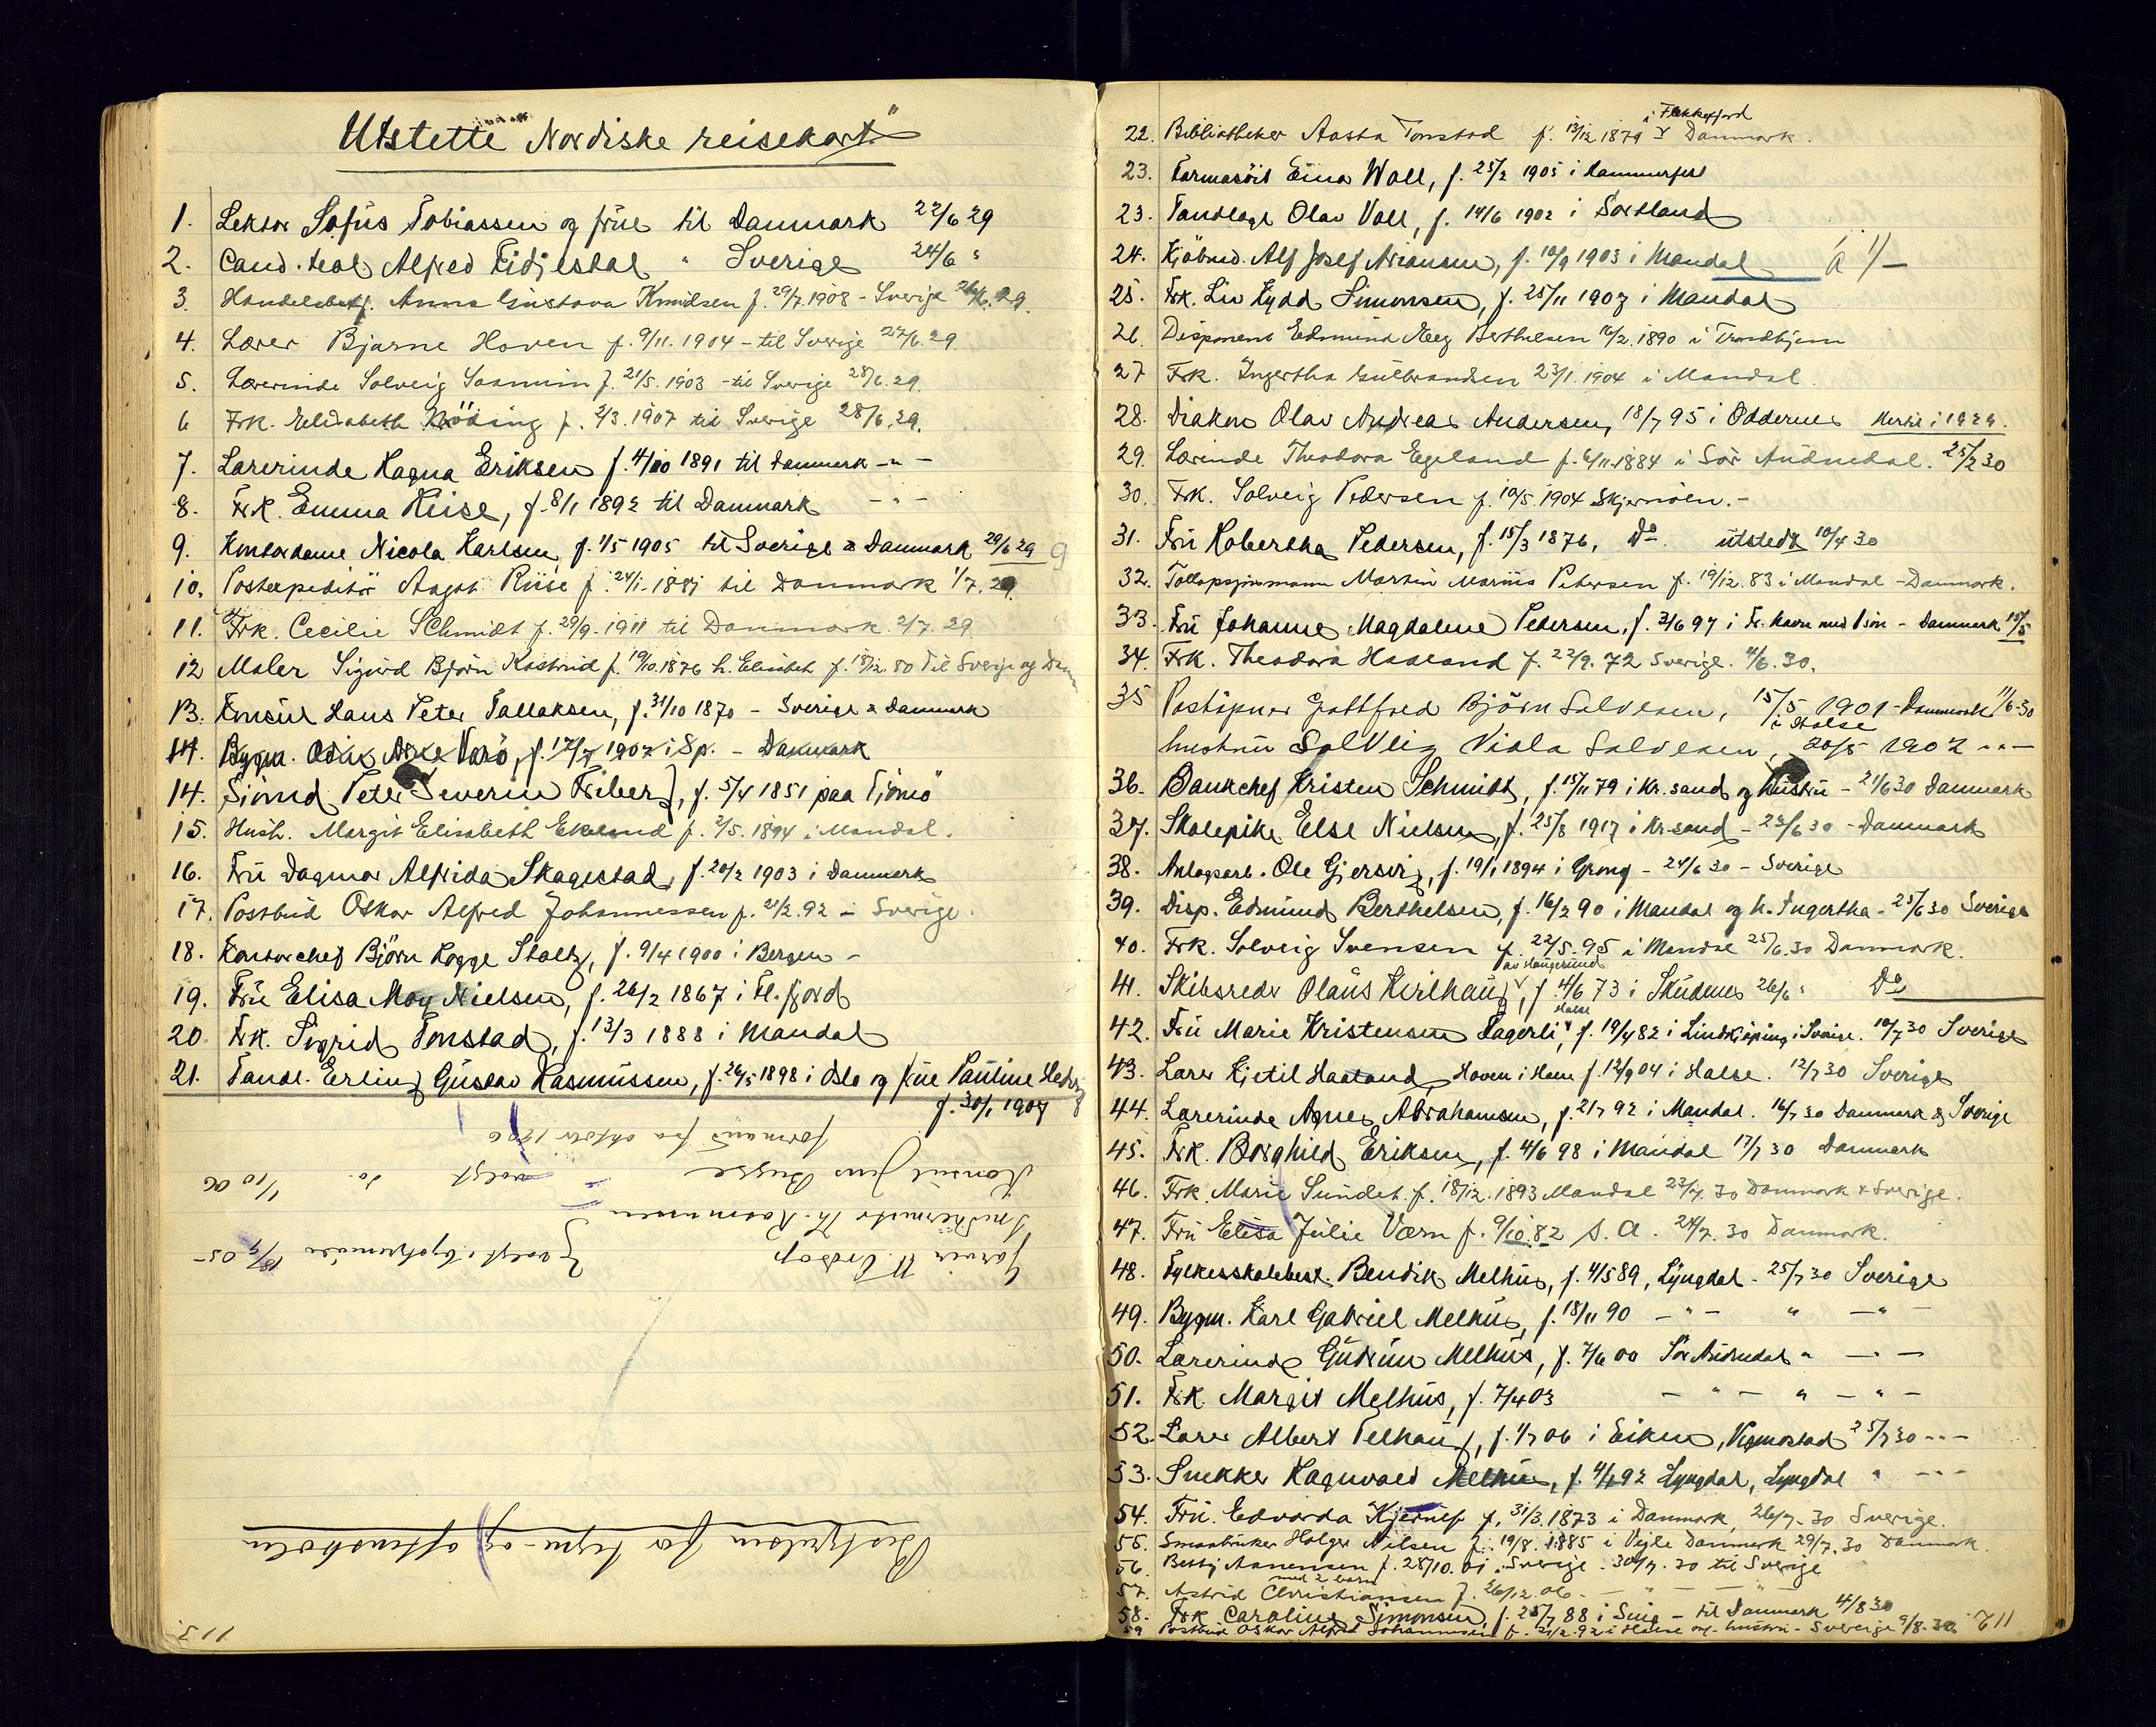 Utstette Nordiske reisekort"
1. Lektor Sofus Tobiassen og frue til Danmark 22/6 29
2. Cand. teol Alfred Eidjestøl " Sverige 24/6 "
3. Anna Gustava Knudsen f. 29/7 1908 - Sverige 29.
4. Lærer Bjarne Hoven f. 9/11. 1904 - til Sverige 27/6 29.
5. Lærerinde Solveig f. 21/5. 1903 - til Sverige 28/6. 29.
6 Frk. Elisabeth f. 2/3. 1907 til Sverige 28/6. 29.
7. Lærerinde Ragna Eriksen f. 4/10 1891 til Danmark - " -
8. Frk. Emma Reise, f. 8/1 1892 til Danmark - " -
9. Kontordame Nicola Karlsen, f. 1/5 1905 til Sverige & Danmark 29/6 29
10. Postexpeditør Aagot Riise f. 24/1. 1887 til Danmark 1/7. 29.
11. Frk. Cecilie Schmidt f. 29/9. 1911 til Danmark 2/7. 29
12 Maler Sigurd Bjørn Kostrud f. 19/10. 1876 h. Elisabeth f. 18/12. 80 Til Sverige og Danm
13. Konsul Hans Peter Tallaksen, f. 31/10 1870 - Sverige & Danmark
14. Bygm. f. 17/7 1907 i Sp. - Danmark
14. Sjømd Peter Severin Friberg, f. 5/4 1851 paa Tjømø
15. Hush. Margit Elisabeth Ekeland f. 2/5. 1894 i Mandal.
16. Fru Dagmar Alfrida Skagestad, f. 20/2 1903 i Danmark
17. Postbud Oskar Alfred Johannessen f. 21/2. 92 - Sverige.
18. Kontorchef Bjørn Rogge Stoltz, f. 9/4 1900 i Bergen -
19. Fru Elisa May Nielsen, f. 26/2 1867 i Fl. fjord
20. Frk. Sigrid Tonstad, f. 13/3 1888 i Mandal
21. Tandl. Erling Gustav Rasmussen, f. 26/5 1898 i Oslo og frue Pauline
f. 30/1 1907
formand fra oktober 1906
Konsul Jens Busse valgt do. 1/10 06
Snekkermester Th. Rasmussen
valgt i
Bestyrelsen for tegne- og aftenskolen
113.
i Flekkefjord
22. Bibliotheker Aasta Tonstad f. 13/12. 1879 Danmark.
23. Farmasöit Eina Woll, f. 25/2 1905 i Hammerfest
23. Tandlæge Olav Voll, f. 14/6 1902 i Sortland
24. Kjöbmd. Alf Josef Ariansen, f. 10/9 1903 i Mandal à 1/-
25. Frk. Liv Lydd Simonsen, f. 25/11 1907 i Mandal
26. Disponent Edmund Berthelsen 16/2. 1890 i Trondhjem
27 Frk. Ingertha Gulbrandsen 23/1. 1904 i Mandal.
28. Diakon Olav Andreas Andersen, 18/7 95 i Oddernes Merke i 1929.
29. Lærinde Theodora Egeland f. 6/11. 1884 i Sör Audnedal. 25/2 30
30. Frk. Solveig Pedersen f. 10/5. 1904 Skjernöen. -
31. Fru Robertha Pedersen, f. 15/3 1876, Do. utstedt 10/4 30
32. Tollopsynsmann Martin Marius Petersen f. 19/12. 83 i Mandal - Danmark.
33. Fru Johanne Magdalene Pedersen, f. 2/6 97 i Fr. havn med sön - Danmark 15/5
34. Frk. Theodora Haaland f. 22/9. 72 Sverige. 4/6. 30.
35 Poståpner Gottfred Björn Salvesen, 15/5 1901 - Danmark 11/6 - 30
i Halse
hustru Solveig Viola Salvesen, 20/5 1902 - " -
36. Bankchef Kristen Schmidt, f. 15/11 79 i Kr. sand og hustru - 21/6 30 Danmark
37. Skolepike Else Nielsen, f. 25/8 1917 i Kr-sand - 23/6 30 - Danmark
38. Anlegsarb. Ole Gjersvig, f. 19/1 1894 i Grong - 24/6 30 - Sverige
39. Disp. Edmund Berthelsen, f. 16/2 90 i Mandal og h. Ingertha - 25/6 30 Sverige
40. Frk. Solveig Svensen f. 22/5. 95 i Mandal 25/6. 30 Danmark.
av Haugesund
41. Skibsreder Olaus Kirlhaug, f. 4/6 73 i Skudenes 26/6 " Do
Halse
42. Fru Marie Kristensen Fagerli, f. 19/4 82 i Lindkjöping i Sverige. 10/7 30 Sverige
43. Lærer Kjetil Haaland Hoven i Holum f. 12/9 04 i Halse. 12/7 30 Sverige
44. Lærerinde Agnes Abrahamsen, f. 21/7 92 i Mandal. 16/7 30 Danmark & Sverige
45. Frk. Borghild Eriksen, f. 4/6 98 i Mandal 17/7 30 Danmark
46. Frk. Marie Sundet f. 18/12. 1893 Mandal 23/7. 30 Danmark & Sverige.
47. Fru Elisa Julie Værn f. 9/10. 82 S. A. 24/7. 30 Danmark.
48. Fylkesskolebest. Bendik Melhus, f. 4/5 89, Lyngdal - 25/7 30 Sverige
49. Bygm. Karl Gabriel Melhus, f. 18/11 90 - " - " - " -
50. Lærerinde Gudrun Melhus, f. 7/6 00 Sör Audnedal " - " -
51. Frk. Margit Melhus, f. 7/4 03 - " - " - " -
52. Lærer Albert Telhaug, f. 1/7 06 i Eiken, Vigmostad 25/7 30 - " -
53. Snekker Ragnvald Melhus, f. 4/1 92 Lyngdal, Lyngdal " - " -
54. Fru. Edvarda Kjerulf f. 31/3. 1873 i Danmark, 26/7. 30 Sverige.
55. Smaabruker Holger Nilsen f. 19/8. 1885 i Vejle Danmark 29/7. 30 Danmark.
56. Betsy Aanensen f. 28/10. 01 i Sverige. 30/7. 30 til Sverige
med 2 barn
57. Astrid Christiansen f. 26/12. 06. - " - - " -
58. Frk. Caroline Simonsen, f. 25/7 88 i - til Danmark 4/8 30
59 Postbud Oskar Alfred Johannessen f. 21/2. 92 i Halse m. hustru - Sverige 9/8. 30.